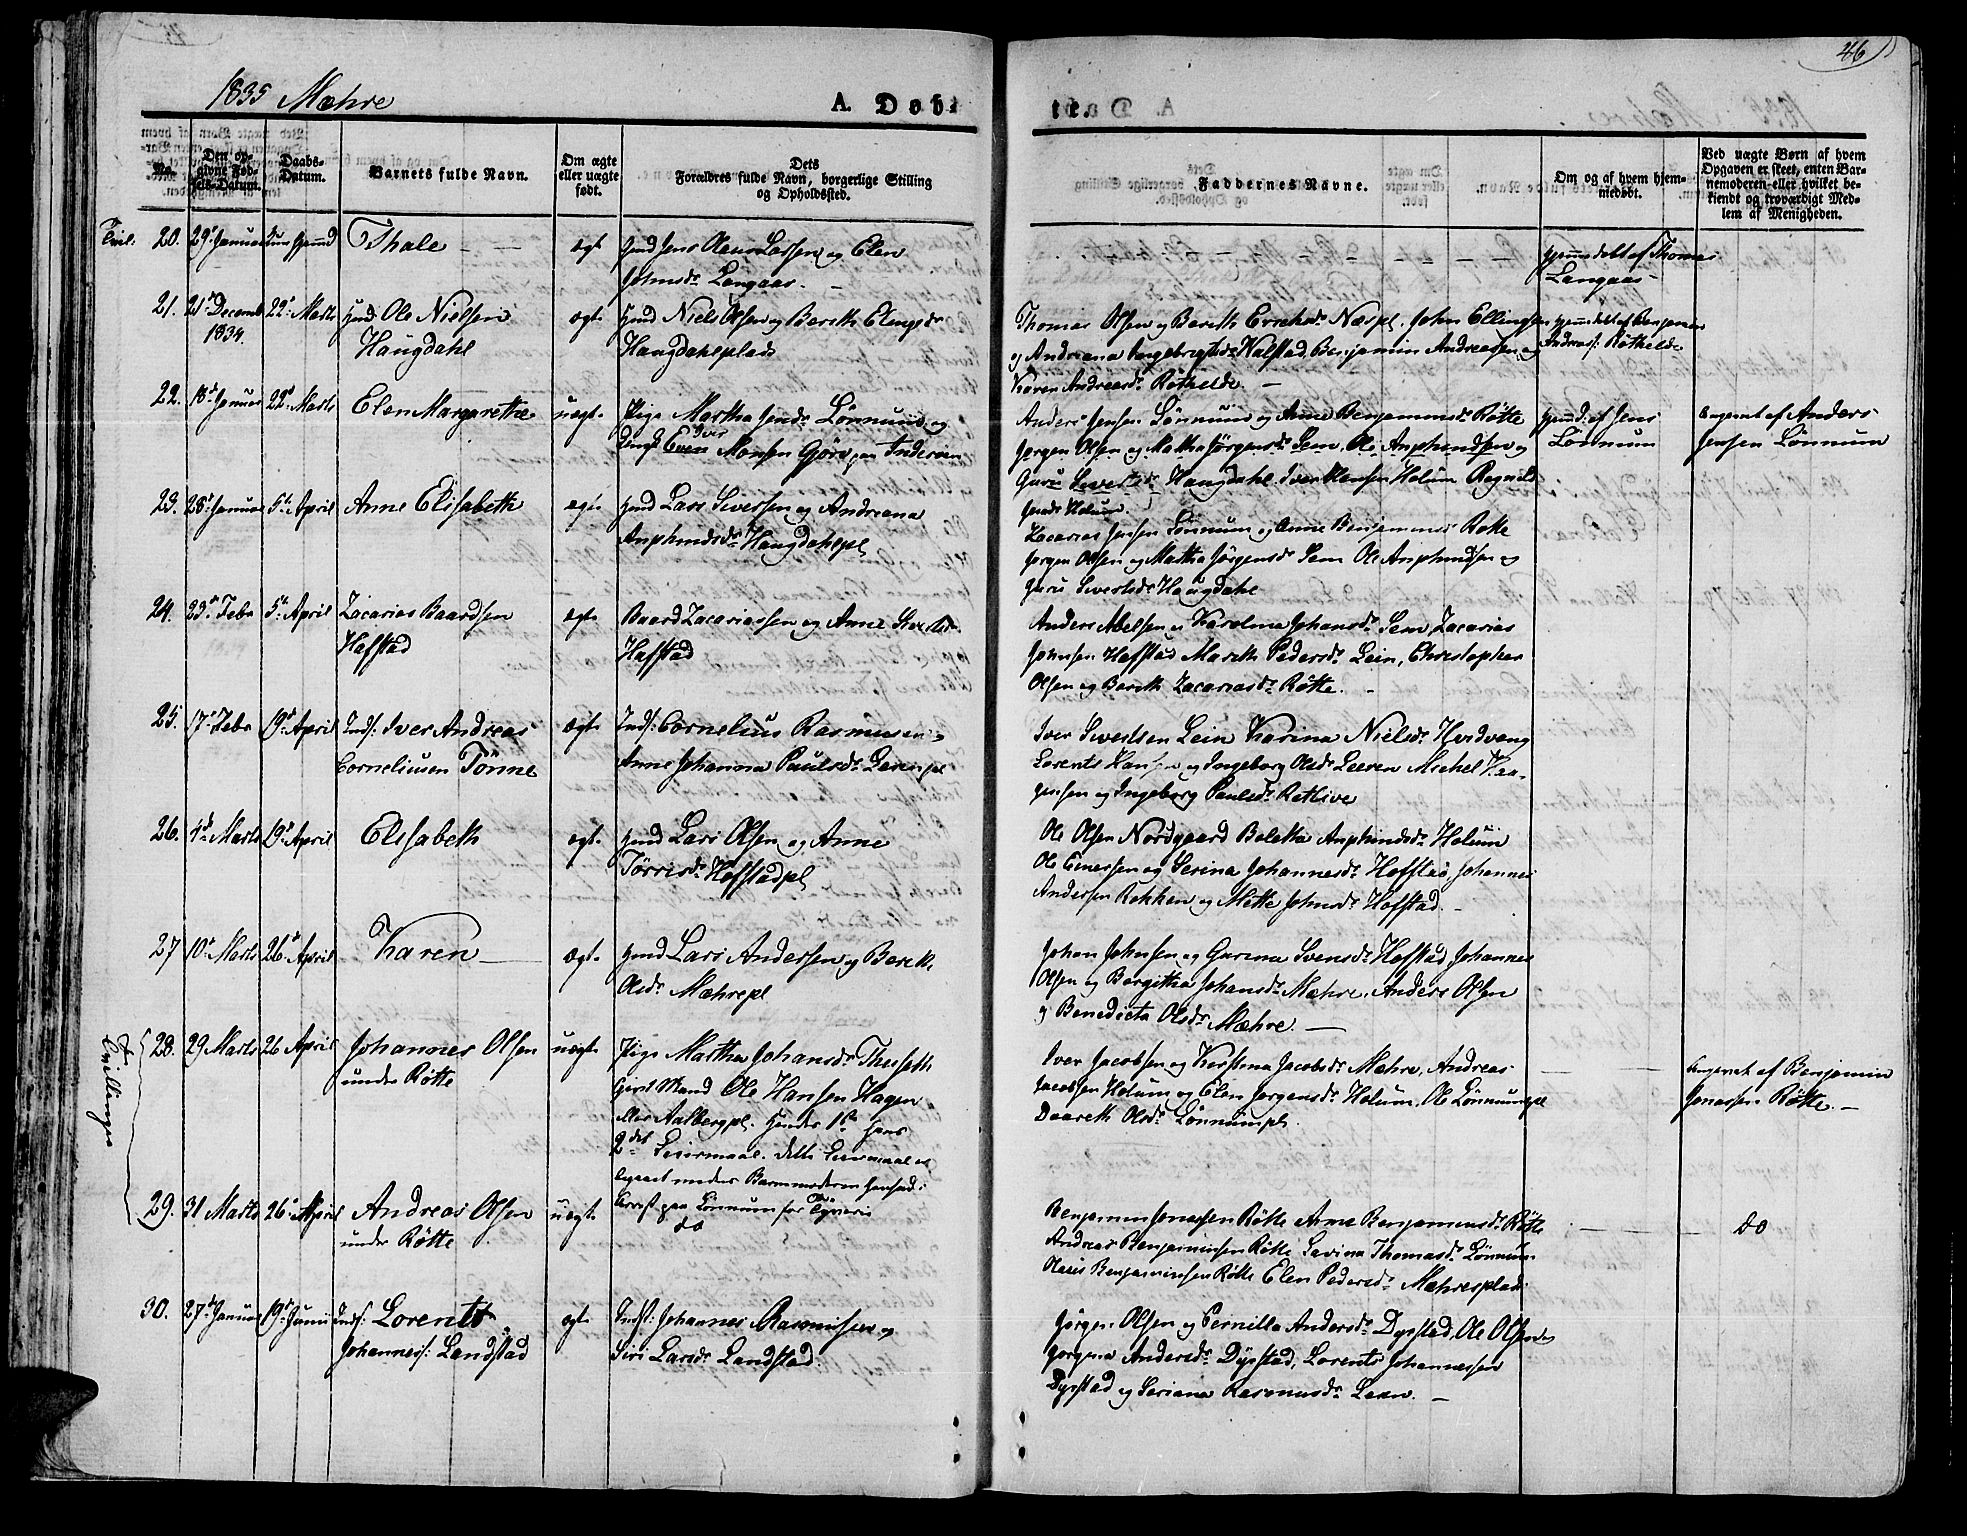 1835 Mæhre
A. Døb-
te.
46
No.
Den op-
givne Fød-
sels-Datum.
Daabs-
Datum.
Barnets fulde Navn.
Om ægte
eller uægte
født.
Dets
Forældres fulde Navn, borgerlige Stilling
og Opholdssted.
Faddernes Navne.
Om og af hvem hjem-
medøbt.
Ved uægte Børn af hvem
Opgaven er skeet, enten Bar-
nemoderen eller hvilket be-
kiendt og troværdigt Med-
lem af Menigheden.
20. 29 Januar Thale ægt Hmd Jens Larsen og Elen
Johnsdr Langaas.
hjemdøbt af Thomas
Langaas
21. 21 Decemb 22 Marts Hmd Ole Nielsen ægt Hmd Niels Olsen og Bereth Elingsdr
1834. Haugdahl Haugdahlsplads
Thomas Olsen og Bereth Erichsdr Næspl, John Ellingsen
og Andreana Ingebrigtsdr Walstad, Benjamin Andreassen og
Karen Andreasdr Røthelde.
hjemdøbt af Benjamin
Andreas: Røthelde
22. 18 Januar 22 Marts Elen Margarethe uægt Pige Martha Jensdr Lønnum og
Iver
Even Monsen Gjörv paa Inderöen
Anders Jensen Lønnum og Anne Benjaminsdr Røtte
Jørgen Olsen og Martha Jørgensdr Sem, Ole Anphindsen og
Guru Sivertsdr Haugdahl, Iver Hansen Holum Ragnild
Holum.
hjemd: af Jens
Lönnum
Angivet af Anders
Jensen Lønnum
23. 28 Januar 5te April Anne Elisabeth ægt Hmd Lars Siversen og Andreana
Anphindsdr Haugdahlspl
Zacarias Jensen Lønnum og Anne Benjaminsdr Røtte
Jørgen Olsen og Martha Jørgensdr Sem Ole Anphindsen og
Guru Sivertsdr Haugdahl
24. 23 Febr 5te April Zacarias Baardsen ægt Baard Zacariassen og Anne
Hafstad Hafstad
Anders Abelsen og Karolina Johansdr Sem, Zacarias
Johnsen Hafstad Mareth Pedersdr Lein, Christopher
Olsen og Bereth Zacariasdr Røtte.
25. 17 Febr 19 April Inds: Iver Andreas ægt Inds: Cornelius Rasmusen og
Corneliusen Tønne Anne Johanna Paulsdr
Iver Sivertsen Lein Karina Nielsdr Hvidvang
Lorents Hansen og Ingeborg Olsdr Leeren Michel Haa-
gensen og Ingeborg Paulsdr
26. 4de Marts 19 April Elisabeth ægt Hmd Lars Olsen og Anne
Tørrisdr Hofstadpl
Ole Olsen Nordgaard Beletha Anphindsdr Holum
Ole Einersen og Serina Johannesdr Hofstad, Johannes
Andersen Rekken og Mette Johnsdr Hofstad.
27 10 Marts 26 April Karen ægt Hmd Lars Andersen og Bereth
Olsdr Mæhrepl
Johan Johnsen og Gurina Svensdr Hofstad Johannes
Olsen og Bergitha Johansdr Mæhre, Anders Olsen
og Benedicta Olsdr Mæhre.
Tvillinger
28. 29 Marts 26 April Johannes Olsen uægt Pige Martha Johansdr
under Røtte givt Mand Ole Hansen Hagen
Aalbergpl. hendes 1ste hans
2det Leiermaal. dette Leiermaal er
Arrest paa Lönnum for Tyveri
Iver Jacobsen og Kirstina Jacobsdr Mæhre, Andreas
Jacobsen Holum og Elen Jørgensdr Holum, Ole Lønnumpl
Daareth Olsdr Lønnumpl.
Angivet af Benjamin
Jonassen Røtte.
29. 31 Marts 26 April Andreas Olsen uægt do
under Røtte
Benjamin Jonassen Røtte Anne Benjaminsdr Røtte
Andreas Benjaminsen Røtte, Lavina Thomasdr Lönnum
Benjaminsen Røtte Elen Pedersdr Mæhresplads
do
30. 27 Januar 19 Juni Inds: Lorents ægt Inds: Johannes Rasmussen og
Johannes: Landstad Siri Larsdr Landstad.
Jørgen Olsen og Pernilla Andersdr Dyrstad, Ole Olsen
Jørgina Andersdr Dyrstad, Lorents Johannessen
Dyrstad og Seriana Rasmusdr